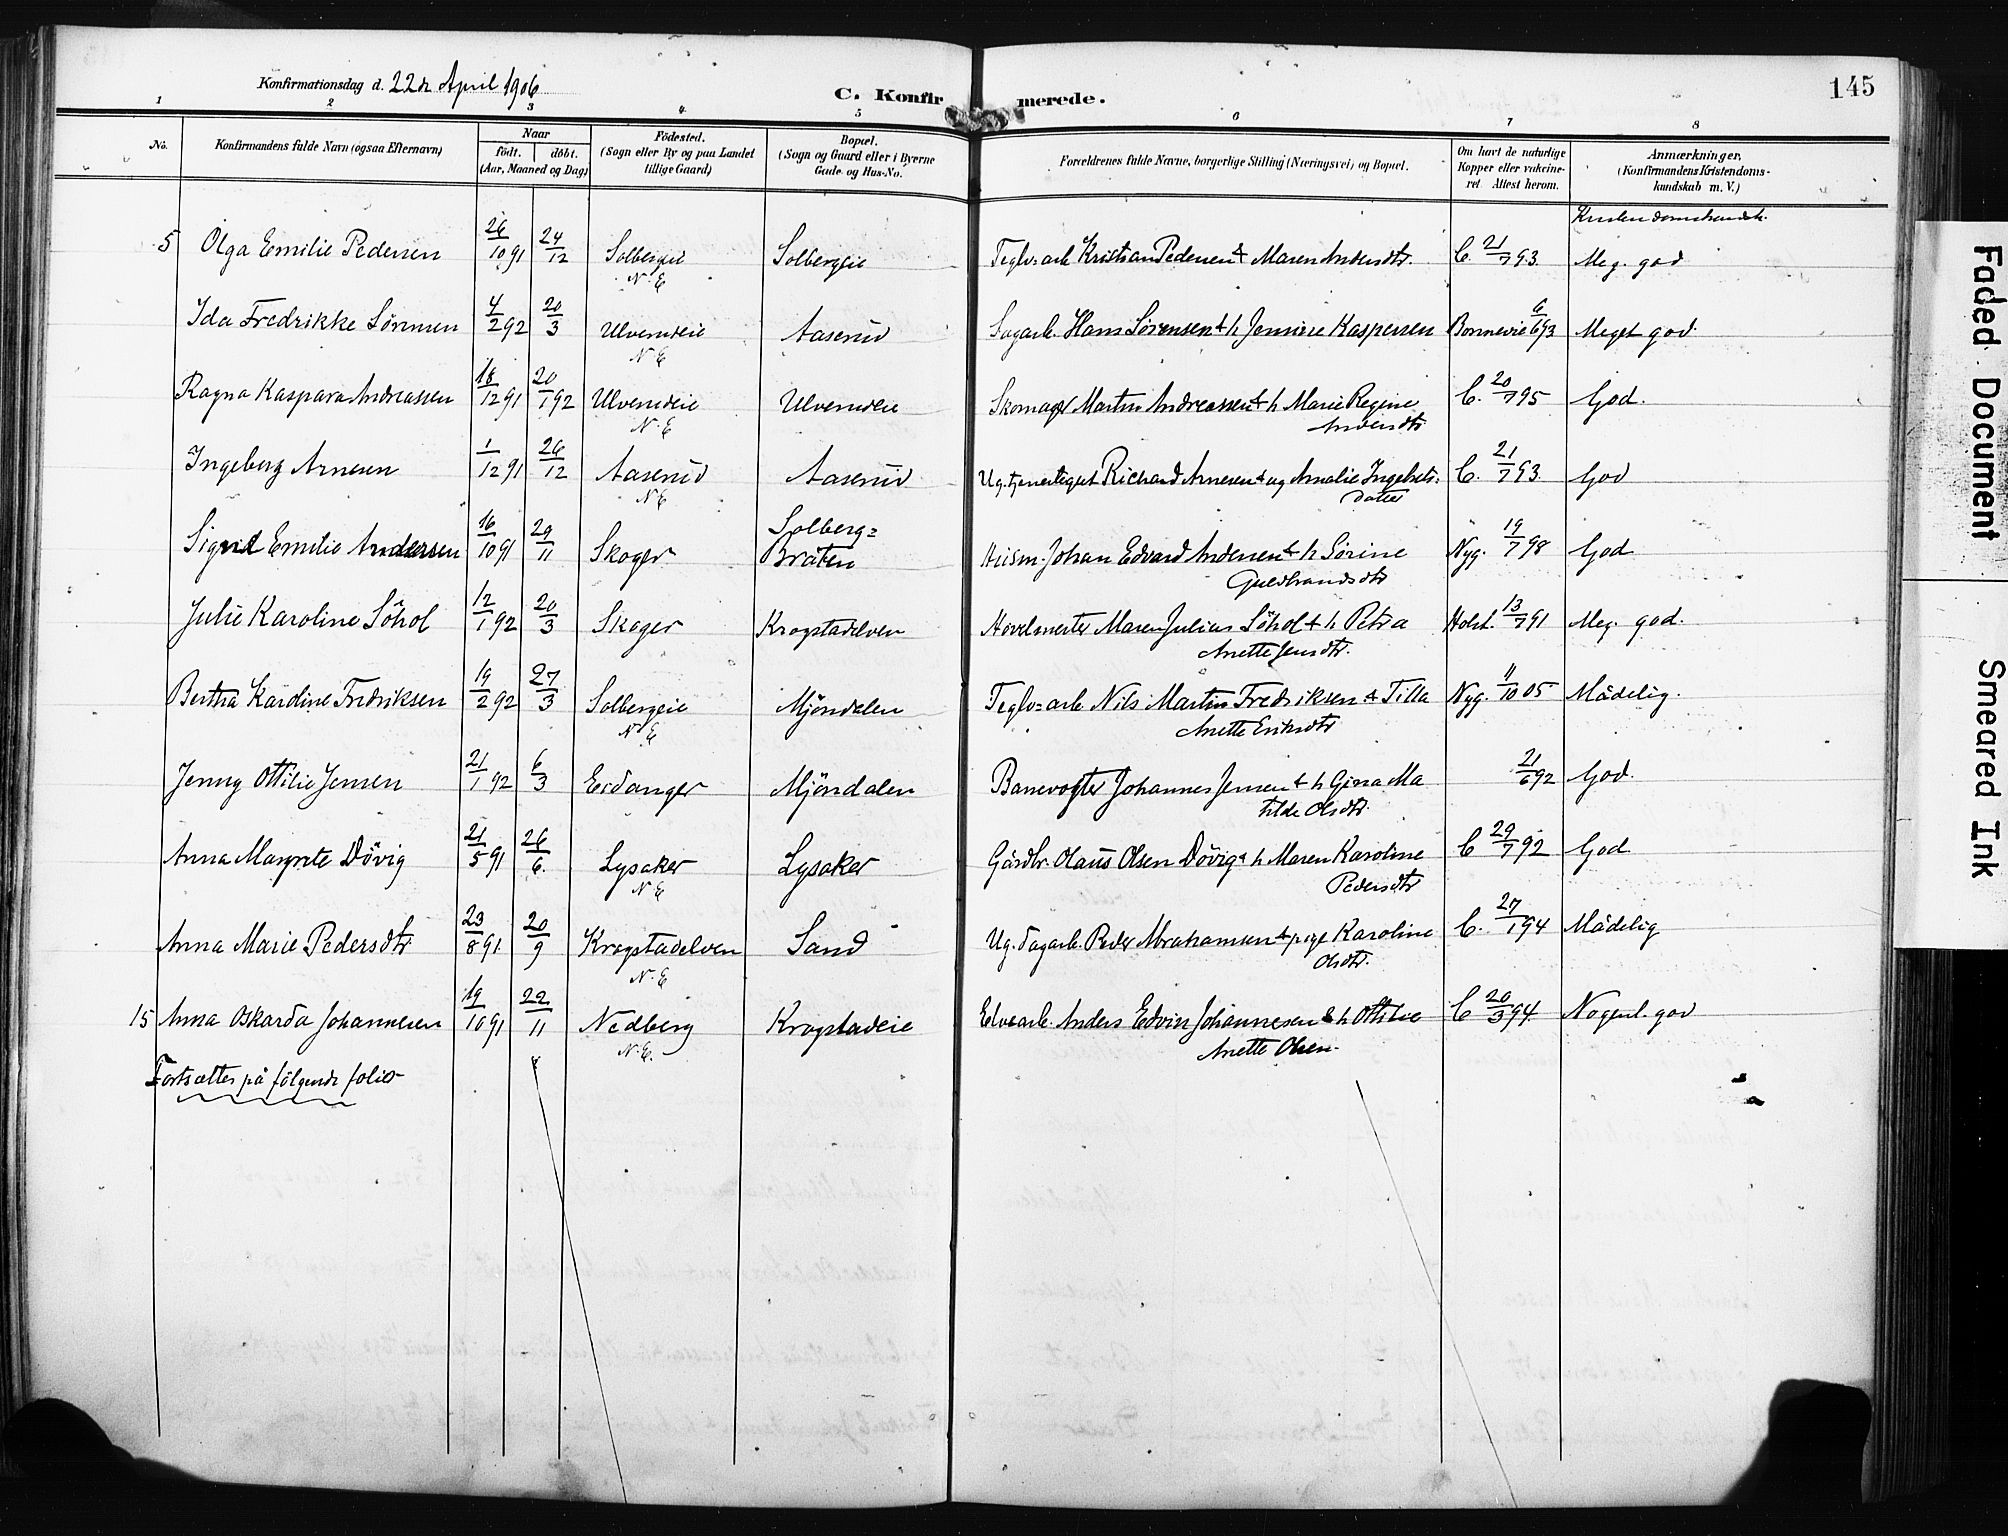 Konfirmationsdag d. 22de April 1906
C. Konfirmerede.
145
1 2 3 4 5 6 7 8
No.
Konfirmandens fulde Navn (ogsaa Efternavn)
Naar
født. døbt.
(Aar, Maaned og Dag)
Fødested.
(Sogn eller By og paa Landet
tillige Gaard)
Bopæl.
(Sogn og Gaard eller i Byerne
Gade- og Hus-No.
Forældrenes fulde Navne, borgerlige Stilling (Næringsvei) og Bopæl.
Om havt de naturlige
Kopper eller vakcine-
ret. Attest herom.
Anmærkninger.
(Konfirmandens Kristendoms-
kundskab m. V.)
Kristendomskundsk.
5 Olga Emilie Pedersen 26/10 91 24/12 Solbergeie N.E Solbergeie Teglv=arb Kristian Pedersen & Maren Andersdtr. C. 21/7 93. Meg. god
Ida Fredrikke Sörensen 4/2 92 20/3 Ulverudeie N.E Aaserud Sagarb. Hans Sörensen & h Jensine Kaspersen Bonnevie 6/6 93 Meget god.
Ragna Kaspara Andreassen 18/12 91 20/1 92 Ulverudeie N.E Ulverudeie Skomager Martin Andreassen & h Marie Regine
Andersdtr C. 20/7 95 God.
Ingeborg Arnesen 1/12 91 26/12 Aaserud N.E Aaserud Richard Arnesen & ug Amalie Ingebrets:
datter C. 21/7 93. God
Sigrid Emilie Andersen 16/10 91 29/11 Skoger Solberg=
Bråten Husm. Johan Edvard Andersen & h Sörine
Guldbrandsdtr Nyg. 19/7 98 God
Julie Karoline Söhol 12/1 92 20/3 Skoger Krogstadelven Hövelmester Maren Julius Söhol & h Petra
Anette Jensdtr. Holst. 13/7 91 Meg. god.
Bertha Karoline Fredriksen 19/2 92 27/3 Solbergeie N.E Mjöndalen Teglv=arb Nils Martin Fredriksen & Tilla
Anette Eriksdtr Nyg. 11/10 05 Mådelig.
Jenny Ottilie Jensen 21/1 92 6/3 Eidanger Mjöndalen Banevogter Johannes Jensen & h Gina Ma
tilde Olsdtr. 21/6 92 God.
Anna Margrete Dövig 21/5 91 26/6. Lysaker N.E Lysaker Gårdbr. Olaus Olsen Dövig & h Maren Karoline
Pedersdtr C 29/7 92 God
Anna Marie Pedersdtr 23/8 91 20/9 Krogstadelven N.E Sand Ug. dagarb. Peder Abrahamsen & pige Karoline
Olsdtr. C. 27/1 94 Mådelig
15 Anna Oskarda Johannesen 19/10 91 22/11 Nedberg N.E. Krogstadeie Elvearb. Anders Edvin Johannesen & h Ottilie
Anette Olsen. C 20/3 94. Nogenl. god
Fortsættes på fölgende folio
Faded Document
Smeared Ink